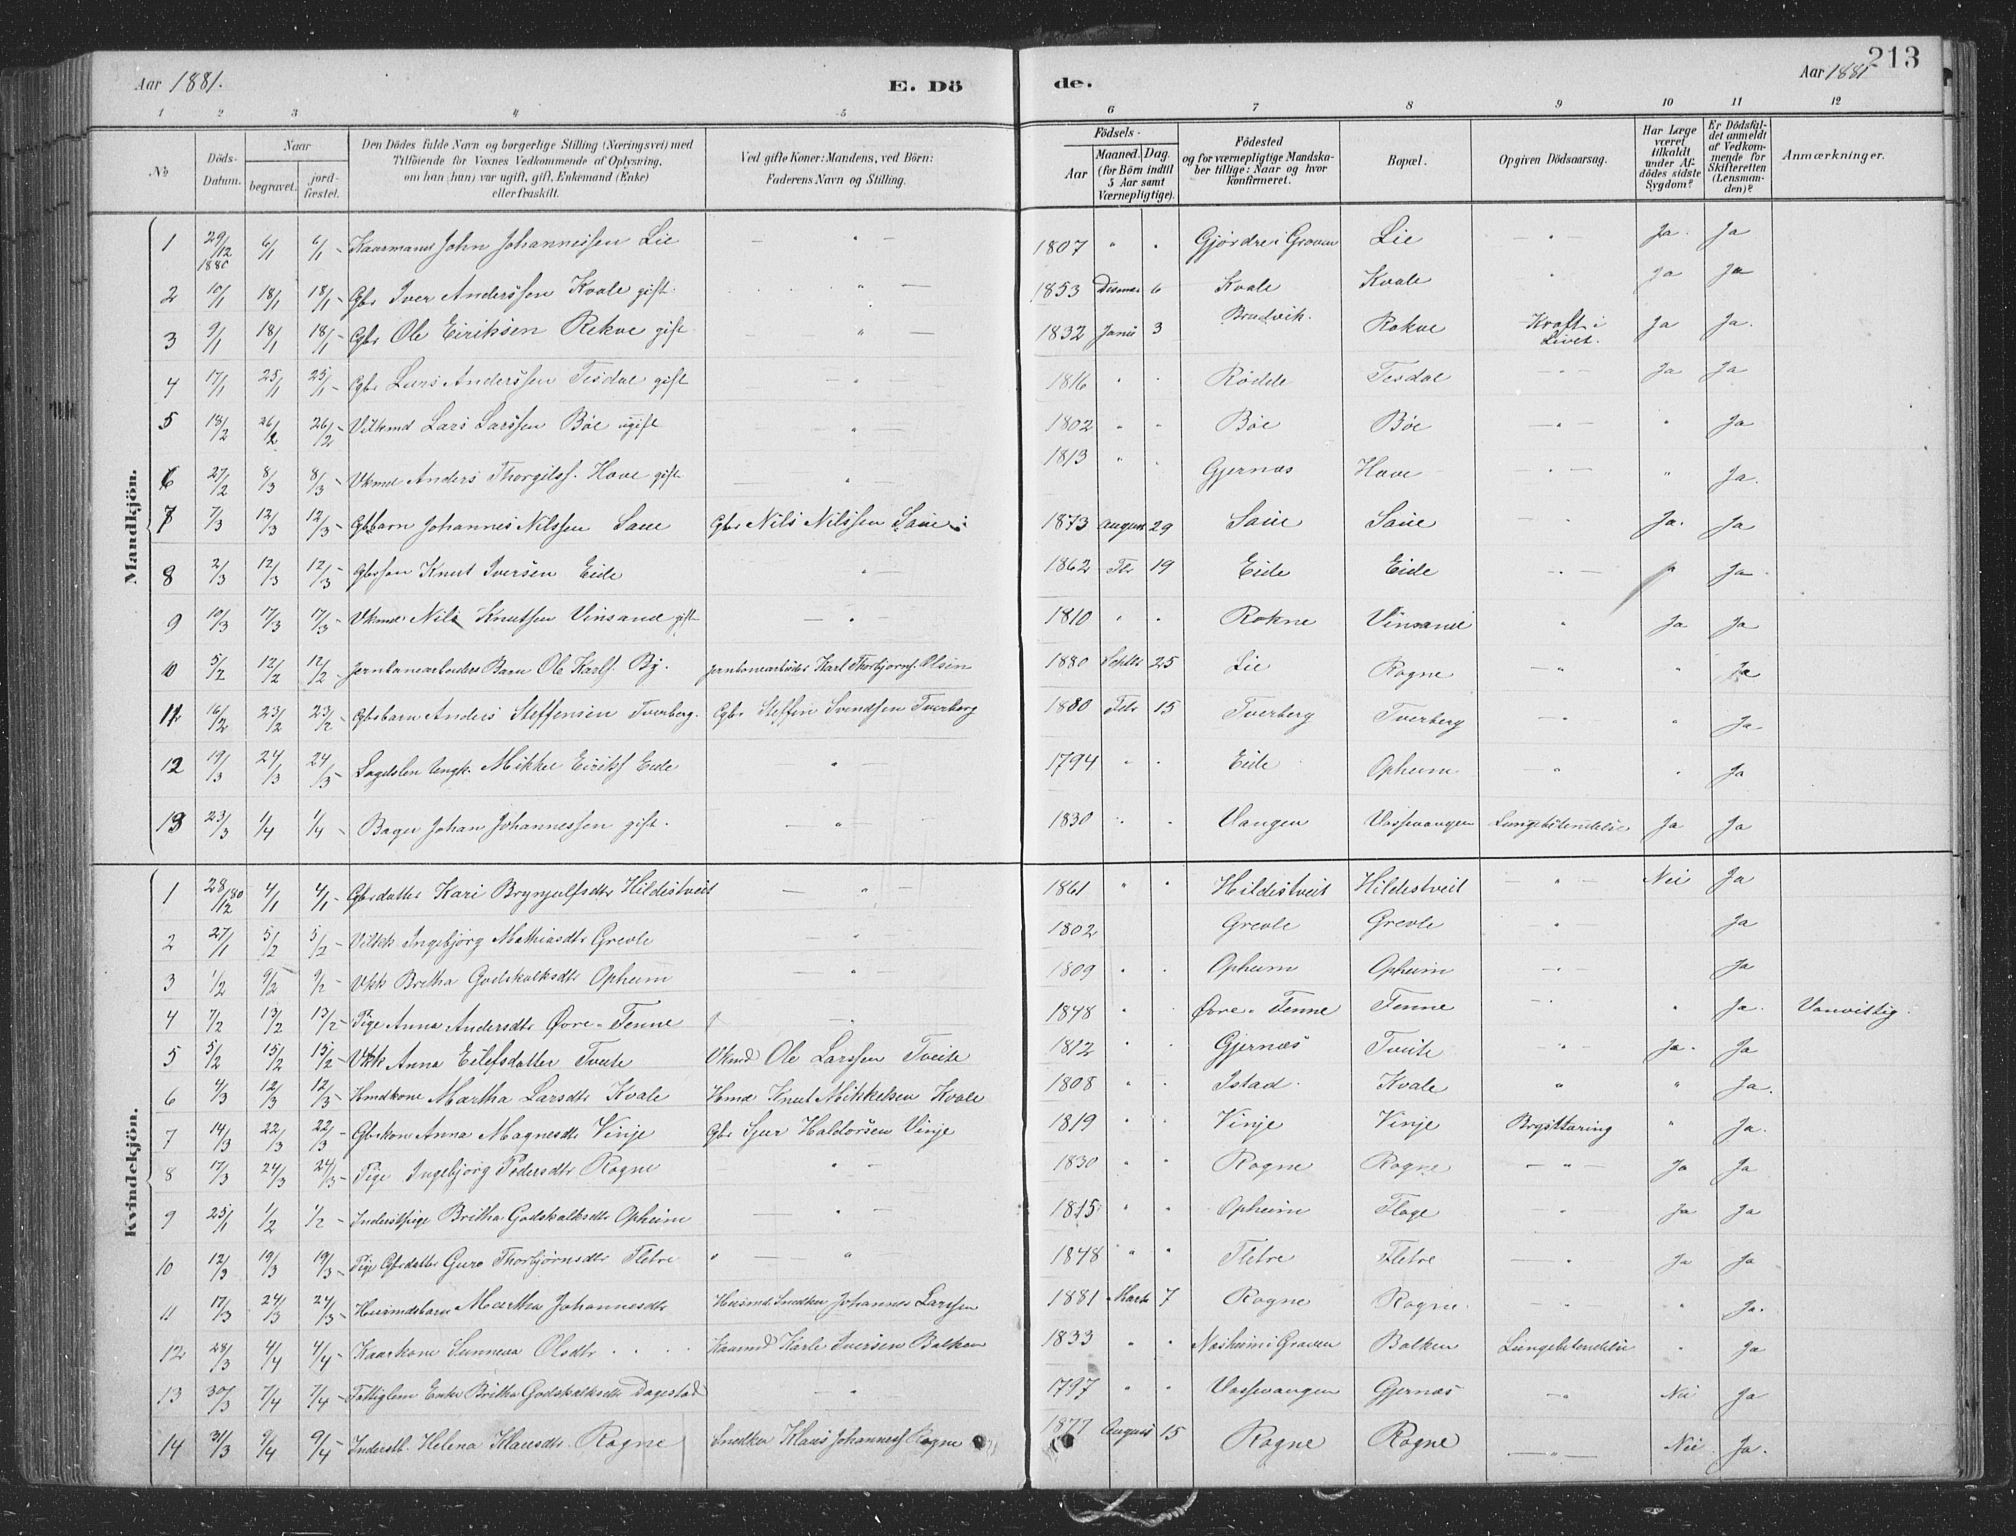 213
Aar 1881. E. Dö de. Aar 1881
1 2 3 4 5 6 7 8 9 10 11 12
No
Döds-Datum.
Naar
begravet.
jord-fæstet.
Den Dödes fulde Navn og borgerlige Stilling (Næringsvei) med
Tilföiende for Voxnes Vedkommende af Oplysning,
om han (hun) var ugift, gift, Enkemand (Enke)
eller fraskilt.
Ved gifte Koner: Mandens, ved Börn:
Faderens Navn og Stilling.
Födsels-
Aar
Maaned. Dag.
(for Börn indtil
5 Aar samt
Værnepligtige).
Födested
og for værnepligtige Mandska-
ber tillige: Naar og hvor
Konfirmeret.
Bopæl.
Opgiven Dödsaarsag.
Har Læge
været
tilkaldt
under Af-
dödes sidste
Sygdom?
Er Dödsfal-
det anmeldt
af Vedkom-
mende for
Skifteretten
(Lensman-
den)?
Anmærkninger.
Mandkjön.
1 29/12 1880 6/1 6/1 - Kaarmand John Johannessen Lie — " — 1807 " " Gjørdre i Graven Lie — " — Ja. Ja
2 10/1 18/1 18/1 - Gbr Iver Anderssen Kvale gift. " — 1853 Desmbr 6 Kvale Kvale " Ja Ja
3 9/1 18/1 18/1 - Gbr Ole Eiriksen Rekve gift " — 1832 Janu 3 Bradvik. Rokve Kræft i Livet. Ja Ja.
4 17/1 25/1 25/1 - Gbr Lars Anderssen Tesdal gift — " — 1816 " " Rødde Tesdal — " — Ja Ja
5 18/2 26/2 26/2 - Vilkmd Lars Larssen Bøe ugift " 1802 " " Bøe Bøe — " — " Ja
6 27/2 8/3 8/3 - Vkmd Anders Thorgilss. Have gift — " — 1813 " " Gjernæs Have " " Ja.
7 7/3 12/3 12/3 - Gbbarn Johannes Nilssen Saue Gbr Nils Nilssen Saue 1873 August 29 Saue Saue " Ja. Ja
8 2/3 12/3 12/3 - Gbsson Knut Iversen Eide " — 1862 Febr 19 Eide Eide — " — " Ja
9 10/3 17/3 17/3 - Vkmd Nils Knutsen Vinsand gift — " — 1810 " " Rokne Vinsand " Ja Ja
10 5/2 12/2 12/2 - Jernbanearbeiders Barn Ole Karls. By. Jernbanearbeider Karl Thorbjørns. Olsen 1880 Septbr 25 Lie Rogne " " Ja
11 16/2 23/2 23/2 - Gbsbarn Anders Steffensen Tverberg. Gbr Steffen Svendsen Tverberg 1880 Febr 15 Tverberg Tverberg — " — Ja
12 19/3 24/3 24/3 - Lægdslem Ungk. Mikkel Eirikss Eide " — 1794 " " Eide Opheim " " Ja
13 23/3 1/4 1/4 - Bager Johan Johannessen gift. " — 1830 " " Vangen Vossevangen Lungebetændelse Ja Ja
Kvindekjön.
1 28/12 80 4/1 4/1 - Gbrdatter Kari Brynjulfsdtr Hildestveit — " — 1861 " " Hildestveit Hildestveit — " — Nei Ja
2 27/1 5/2 5/2 - Vilkk Ingebjørg Mathiasdtr Grevle " 1802 Grevle Grevle — " — Ja
3 1/2 9/2 9/2 - Vkk Britha Godskalksdtr Opheim " 1809 " " Opheim Opheim — " — Ja
4 7/2 13/2 13/2 - Pige Anna Andersdtr Øvre-Tenne " — 1848 " " Øvre-Tenne Tenne " " Ja. Vanvittig.
5 5/2 15/2 15/2 - Vkk Anna Eilefsdatter Tveite Vkmd Ole Larssen Tveite 1812 " " Gjernæs Tveite " Ja. Ja
6 4/3 12/3 12/3 - Hmdkone Martha Larsdtr Kvale Hmd Knut Mikkelsen Kvale 1808 " " Istad. Kvale " " Ja.
7 14/3 22/3 22/3 - Gbrkone Anna Magnesdtr Vinje Gbr Sjur Haldorsen Vinje 1819 " " Vinje Vinje Brysttæring " Ja.
8 17/3 24/3 24/3 - Pige Ingebjørg Pedersdtr Rogne " — 1830 " " Rogne Rogne — " — Ja Ja
9 25/1 1/2 1/2 - Inderstpige Britha Godskalksdtr Opheim — " — 1815 " " Opheim Flage " Ja Ja
10 12/3 19/3 19/3 - Pige Gbrdatter Guro Thorbjørnsdtr Fletre " — " 1848 " " Fletre Fletre " Ja Ja
11 17/3 24/3 24/3 - Husmdsbarn Martha Johannesdtr Husmd. Snedker Johannes Larssen 1881 Marts 7 Rogne Rogne. " " Ja.
12 28/3 4/4 4/4 - Kaarkone Sunneva Olsdtr . . . . Kaarmd Karle Iversen Balken 1833 " " Næsheim i Graven Balken Lungebetændelse " Ja
13 30/3 7/4 7/4 - Fattiglem Enke Britha Godskalksdtr Dagestad " 1797 " " Vossevangen Gjernæs " Nei Ja
14 31/3 9/4 9/4 - Inderstb. Helena Klausdtr. Rogne Snedker Klaus Johanness Rogne 1877 August 15 Rogne Rogne — " — Nei Ja.